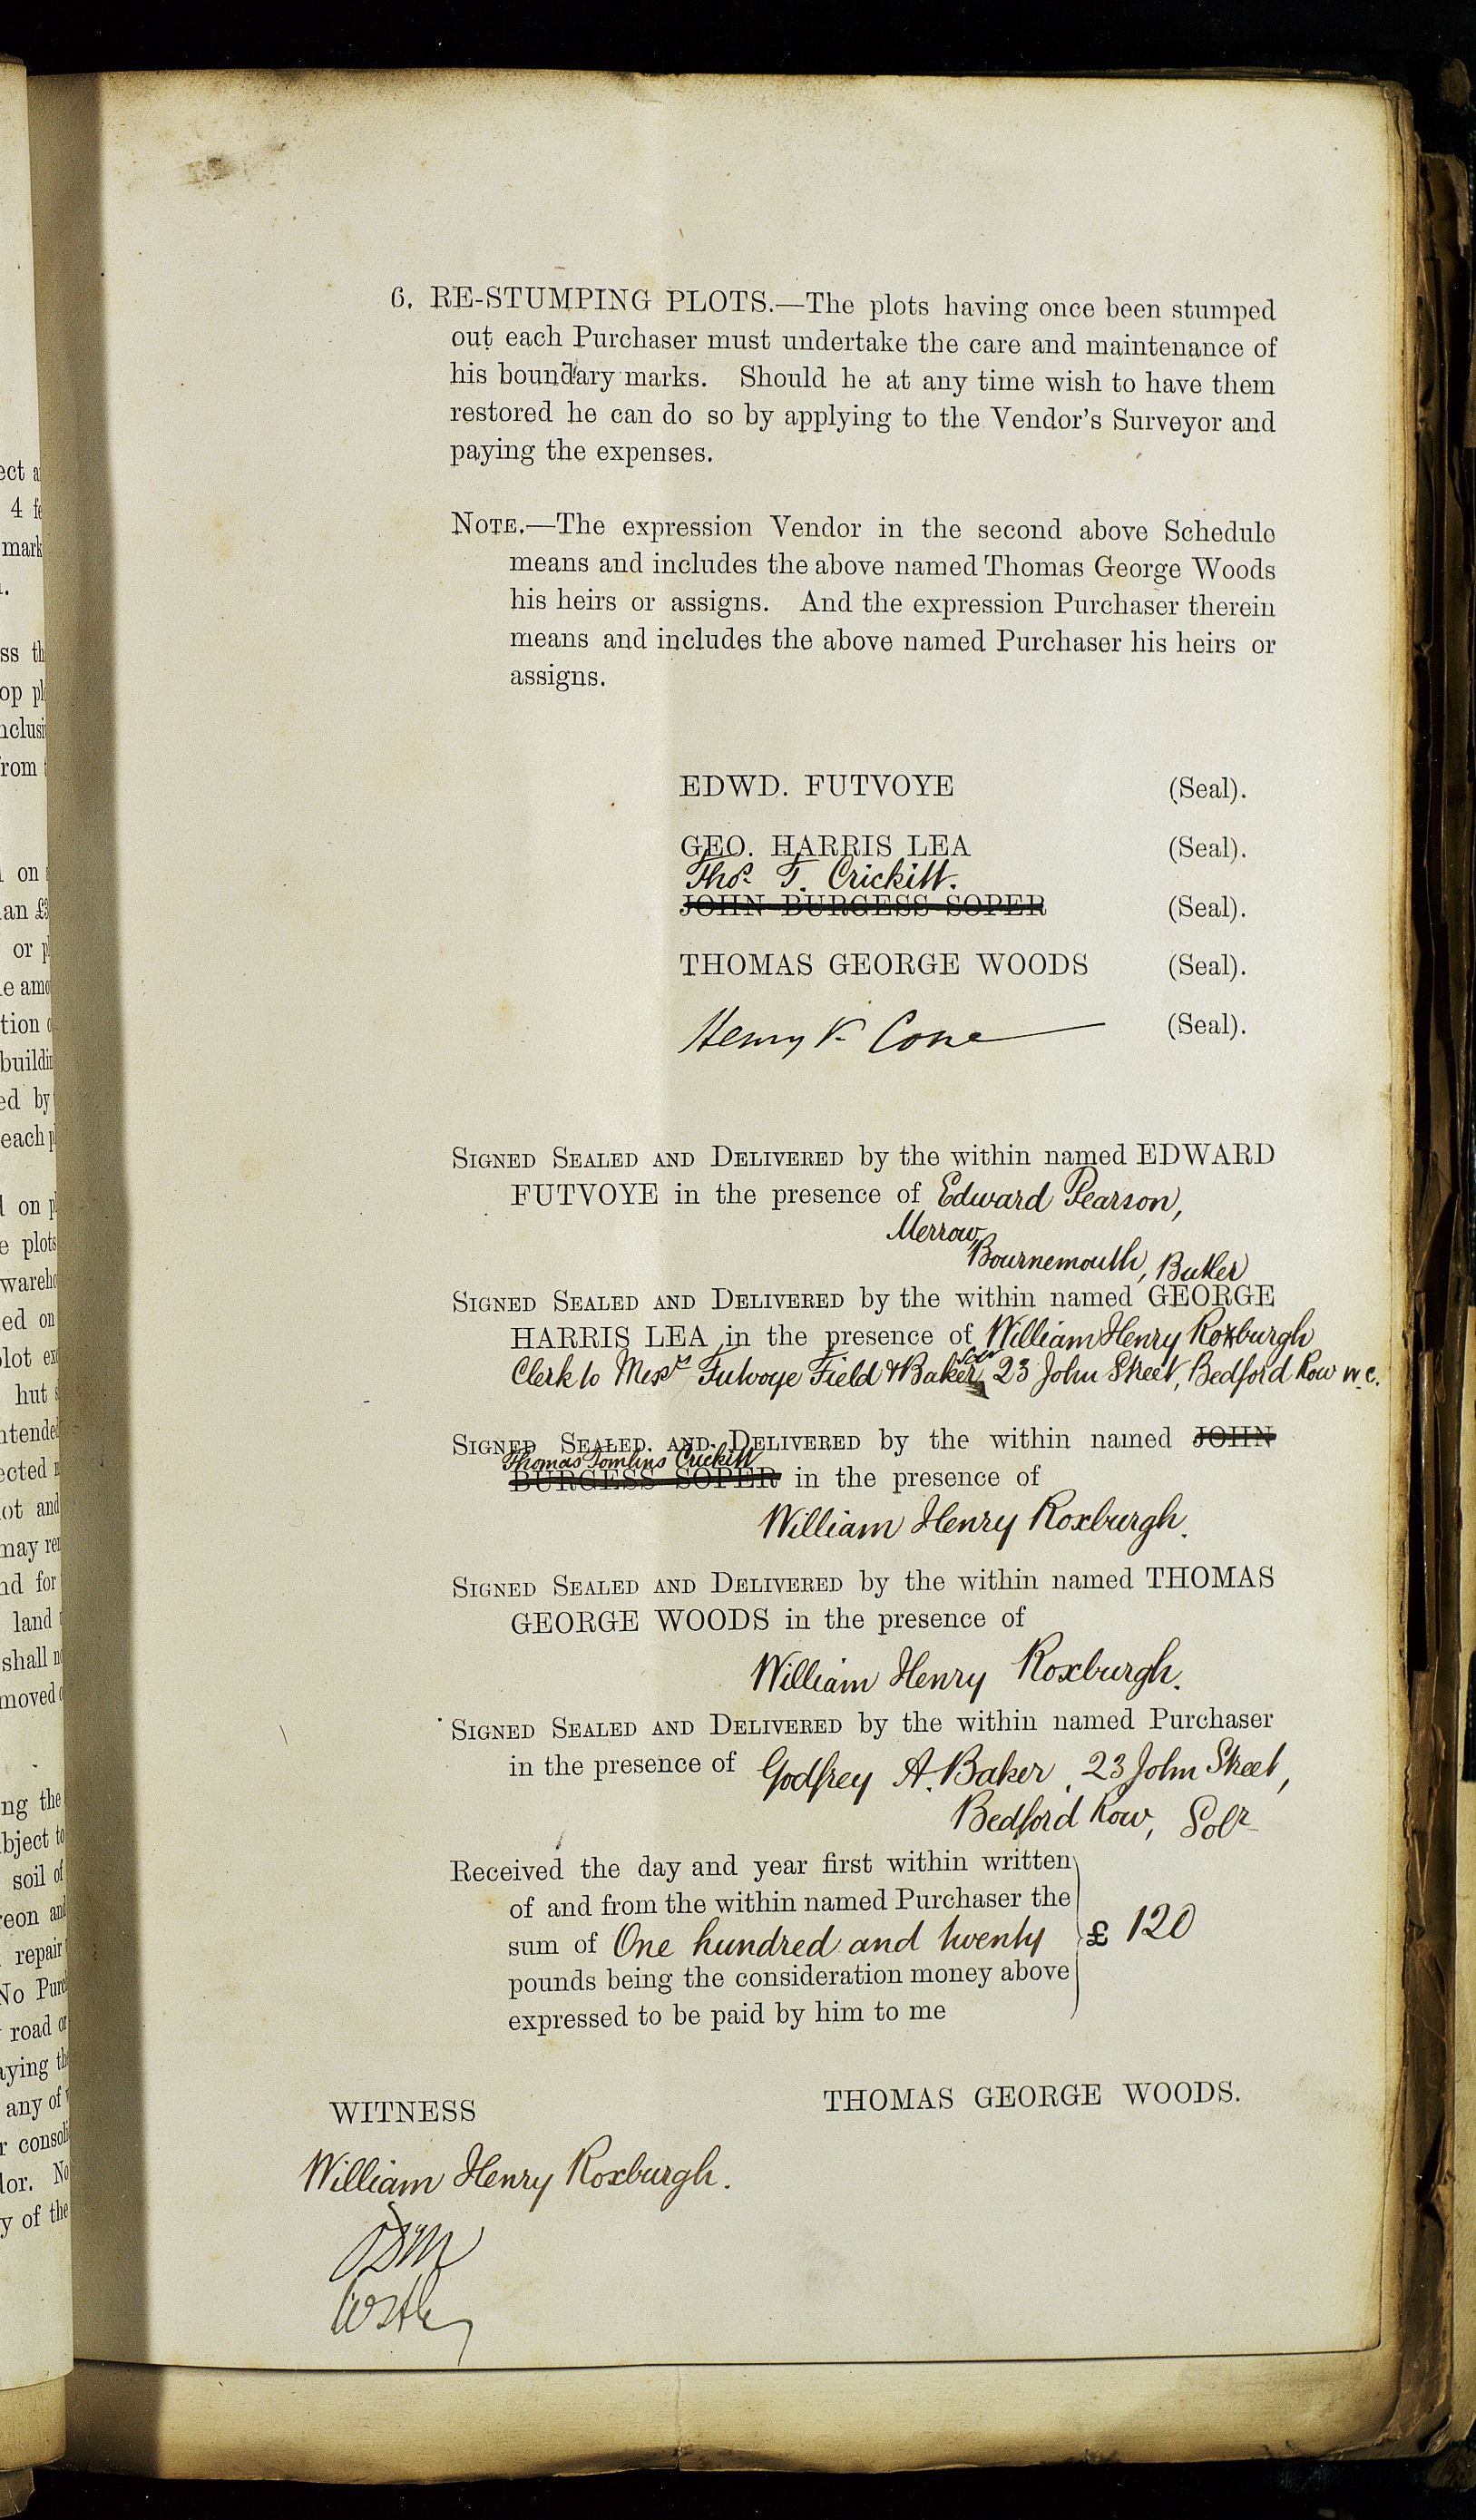 6. RE-STUMPING PLOTS.—The plots having once been stumped
out each Purchaser must undertake the care and maintenance of
his boundary marks. Should he at any time wish to have them
restored he can do so by applying to the Vendor's Surveyor and
paying the expenses.
NOTE.—The expression Vendor in the second above Schedule
means and includes the above named Thomas George Woods
his heirs or assigns. And the expression Purchaser therein
means and includes the above named Purchaser his heirs or
assigns.
EDWD. FUTVOYE (Seal).
GEO. HARRIS LEA (Seal).
Thos. T. Crickitt.
JOHN BURGESS SOPER (Seal).
THOMAS GEORGE WOODS (Seal).
Henry K Cone (Seal).
SIGNED SEALED AND DELIVERED by the within named EDWARD
FUTVOYE in the presence of Edward Pearson,
Merrow,
Bournemouth, Butler
SIGNED SEALED AND DELIVERED by the within named GEORGE
HARRIS LEA in the presence of William Henry Roxburgh
Clerk to Messrs Futvoye Field & Baker, 23 John Street, Bedford Row W.C.
SIGNED SEALED AND DELIVERED by the within named JOHN
Thomas Tomlins Crickitt
BURGESS SOPER in the presence of
William Henry Roxburgh.
SIGNED SEALED AND DELIVERED by the within named THOMAS
GEORGE WOODS in the presence of
William Henry Roxburgh.
SIGNED SEALED AND DELIVERED by the within named Purchaser
in the presence of Godfrey A. Baker, 23 John Street,
Bedford Row, Solr
Received the day and year first within written
of and from the within named Purchaser the
sum of One hundred and twenty £ 120
pounds being the consideration money above
expressed to be paid by him to me
THOMAS GEORGE WOODS.
WITNESS
William Henry Roxburgh.